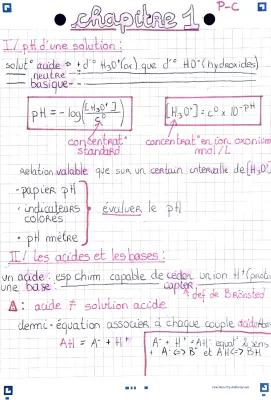 P-C
chapitre 1
I/ pH d'une solution :
solut° acide → + d'° H₃O⁺(ox) que d'° HO⁻(hydroxides)
neutre -
basique -
pH = - log([H₃O⁺]/c°)
[H₃O⁺] = c° × 10^-pH
concentrat° standard
concentrat° en ion oxonium mol/L
relation valable que sur un certain intervalle de [H₃O
• papier pH
• indicateurs colorés
évaluer le pH
• pH mètre
II/ les acides et les bases :
un acide : esp chim capable de céder un ion H⁺ (proto
une base : capter
def de Brönsted
⚠ : acide ≠ solution acide
demi-équation associer à chaque couple acide/base
AH = A⁻ + H⁺
A⁻ + H⁺ = AH equat° 2 sens